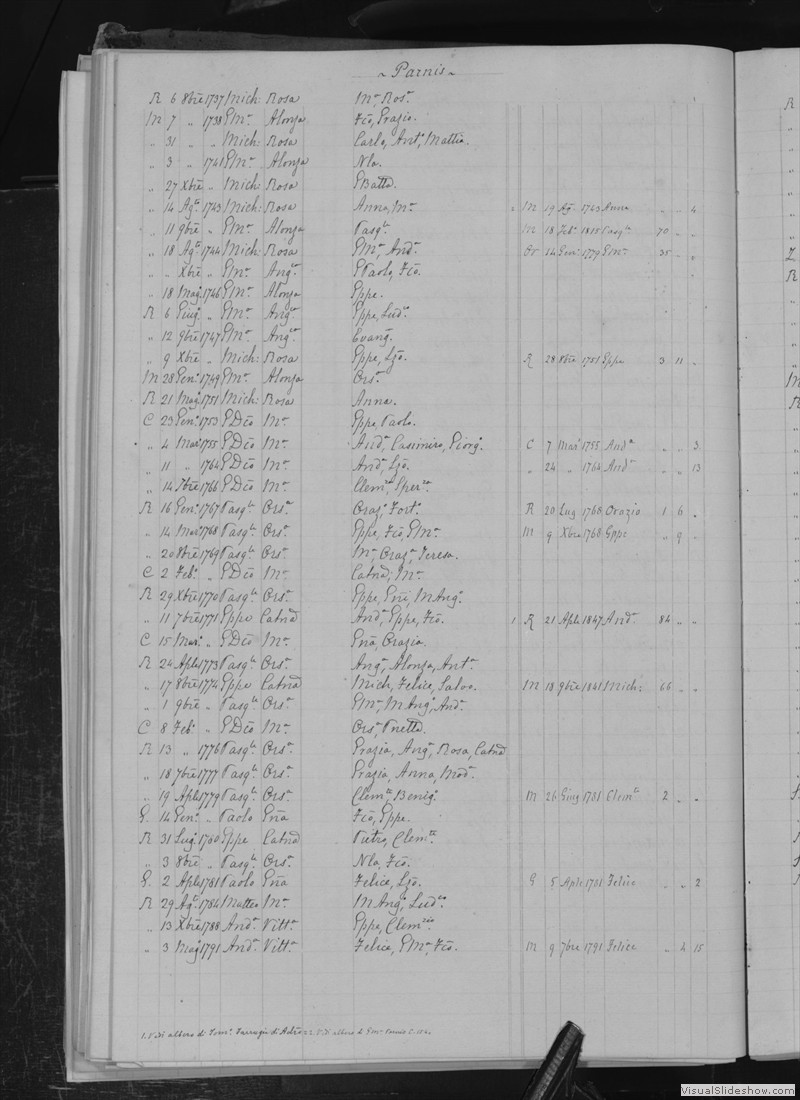 ~ Parnis ~
R 6 8bre 1737 Mich: Rosa Mª Rosª
M 7 " 1738 GMª Alonza Fcõ, Grazia.
" 31 " " Mich: Rosa Carlo, Antº, Mattia.
" 3 " 1741 GMª Alonza Nla.
" 27 Xbre " Mich: Rosa GBatta.
" 14 Agº 1743 Mich: Rosa Anna, Mª M 19 Agº 1743 Anna " " 4
" 11 9bre " GMª Alonza Pasqle M 18 Febº 1815 Pasqle 70 " "
" 18 Agº 1744 Mich: Rosa GMª, Andª 14 Genº 1779 GMª 35 " "
" " Xbre " GMª Angca GPaolo, Fcõ.
" 18 Magº 1746 GMª Alonza Gppe.
R 6 Giugº " GMª Angca Gppe, Ludco
" 12 9bre 1747 GMª Angca Evangª
" 9 Xbre " Mich: Rosa Gppe, Lzõ. R 28 8bre 1751 Gppe 3 11 "
M 28 Genº 1749 GMª Alonza Orsª
R 21 Magº 1751 Mich: Rosa Anna.
C 23 Genº 1753 GDcõ Mª Gppe, Paolo.
" 4 Marº 1755 GDcõ Mª Andª, Casimiro, Giorgº. C 7 Marº 1755 Andª " " 3
" 11 " 1764 GDcõ Mª Andª, Lzõ. " 24 " 1764 Andª " " 13
" 14 7bre 1766 GDcõ Mª
R 16 Genº 1767 Pasqle Orsª Orazº, Fortº. R 20 Lug 1768 Orazio 1 6 "
" 14 Marº 1768 Pasqle Orsª Gppe, Fcõ, GMª M 9 Xbre 1768 Gppe " 9 "
" 20 8bre 1769 Pasqle Orsª Mª, Grazª, Teresa.
C 2 Febº " GDcõ Mª Catnã, Mª
R 29 Xbre 1770 Pasqle Orsª Gppe, Gñi, MAngª.
" 11 7bre 1771 Gppe Catnã Andª, Gppe, Fcõ. 1 R 21 Aple 1847 Andª 84 " "
C 15 Marº " GDcõ Mª Gña, Grazia.
R 24 Aple 1773 Pasqle Orsª Angª, Alonza, Antª.
" 17 8bre 1774 Gppe Catnã Mich, Felice, Salvo. M 18 9bre 1841 Mich: 66 " "
" 1 9bre " Pasqle Orsª GMª, MAngª, Andª.
C 8 Febº " GDcõ Mª Orsª, Pnetta.
R 13 " 1776 Pasqle Orsª Grazia, Angª, Rosa, Catnã
" 18 7bre 1777 Pasqle Orsª Grazia, Anna, Madª.
" 19 Aple 1779 Pasqle Orsª Clemte, Benigº. M 26 Giug 1781 Clemte 2 " "
G 14 Genº " Paolo Gña Fcõ, Gppe.
R 31 Lugº 1780 Gppe Catnã Pietro, Clemte
" 3 8bre " Pasqle Orsª Nla, Fcõ.
G 2 Aple 1781 Paolo Gña Felice, Lzõ. G 5 Aple 1781 Felice " " 2
R 29 Agº 1784 Matteo Mª MAngª, Ludca
" 13 Xbre 1788 Andª Vittª Gppe,
" 3 Magº 1791 Andª Vittª Felice, GMª, Fcõ. M 9 7bre 1791 Felice " 4 15
1. Vedi albero di
VisualSlideshow.com